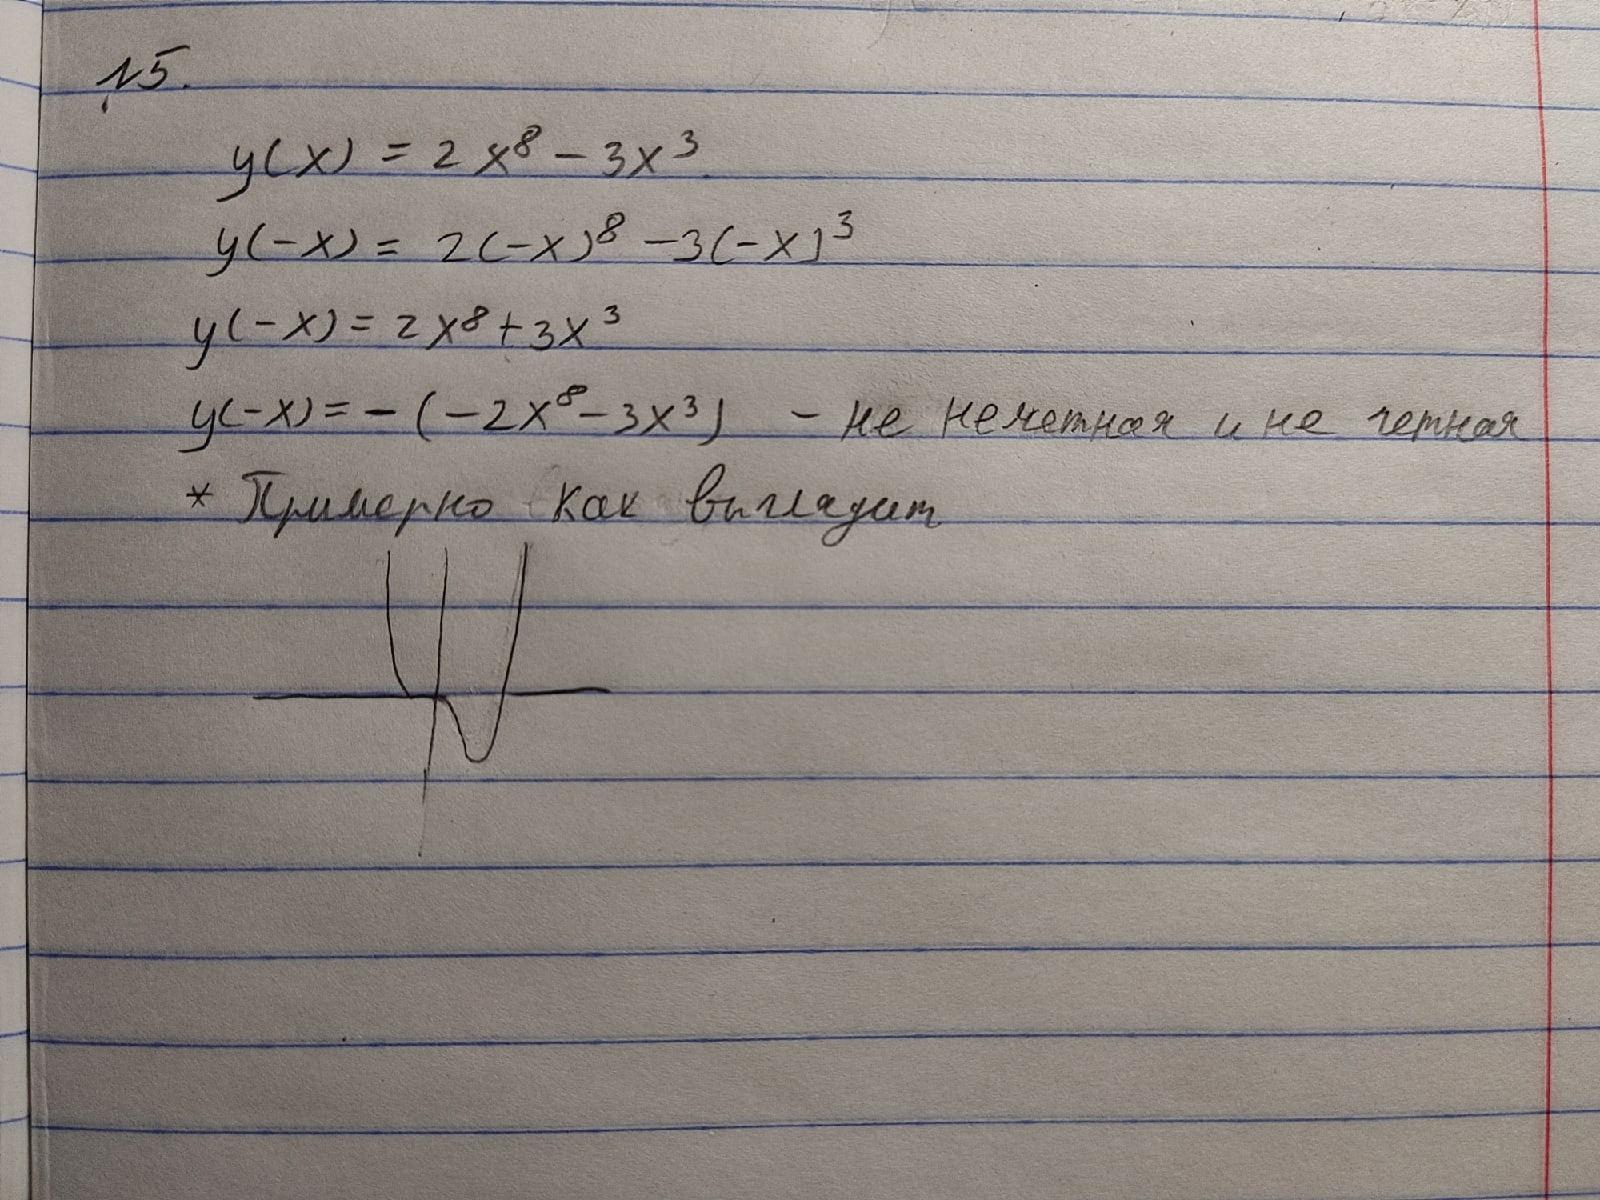 №5.
y(x) = 2x⁸ - 3x³
y(-x) = 2(-x)⁸ - 3(-x)³
y(-x) = 2x⁸ + 3x³
y(-x) = - (-2x⁸ - 3x³) - не нечетная и не четная
* Примерно как выглядит